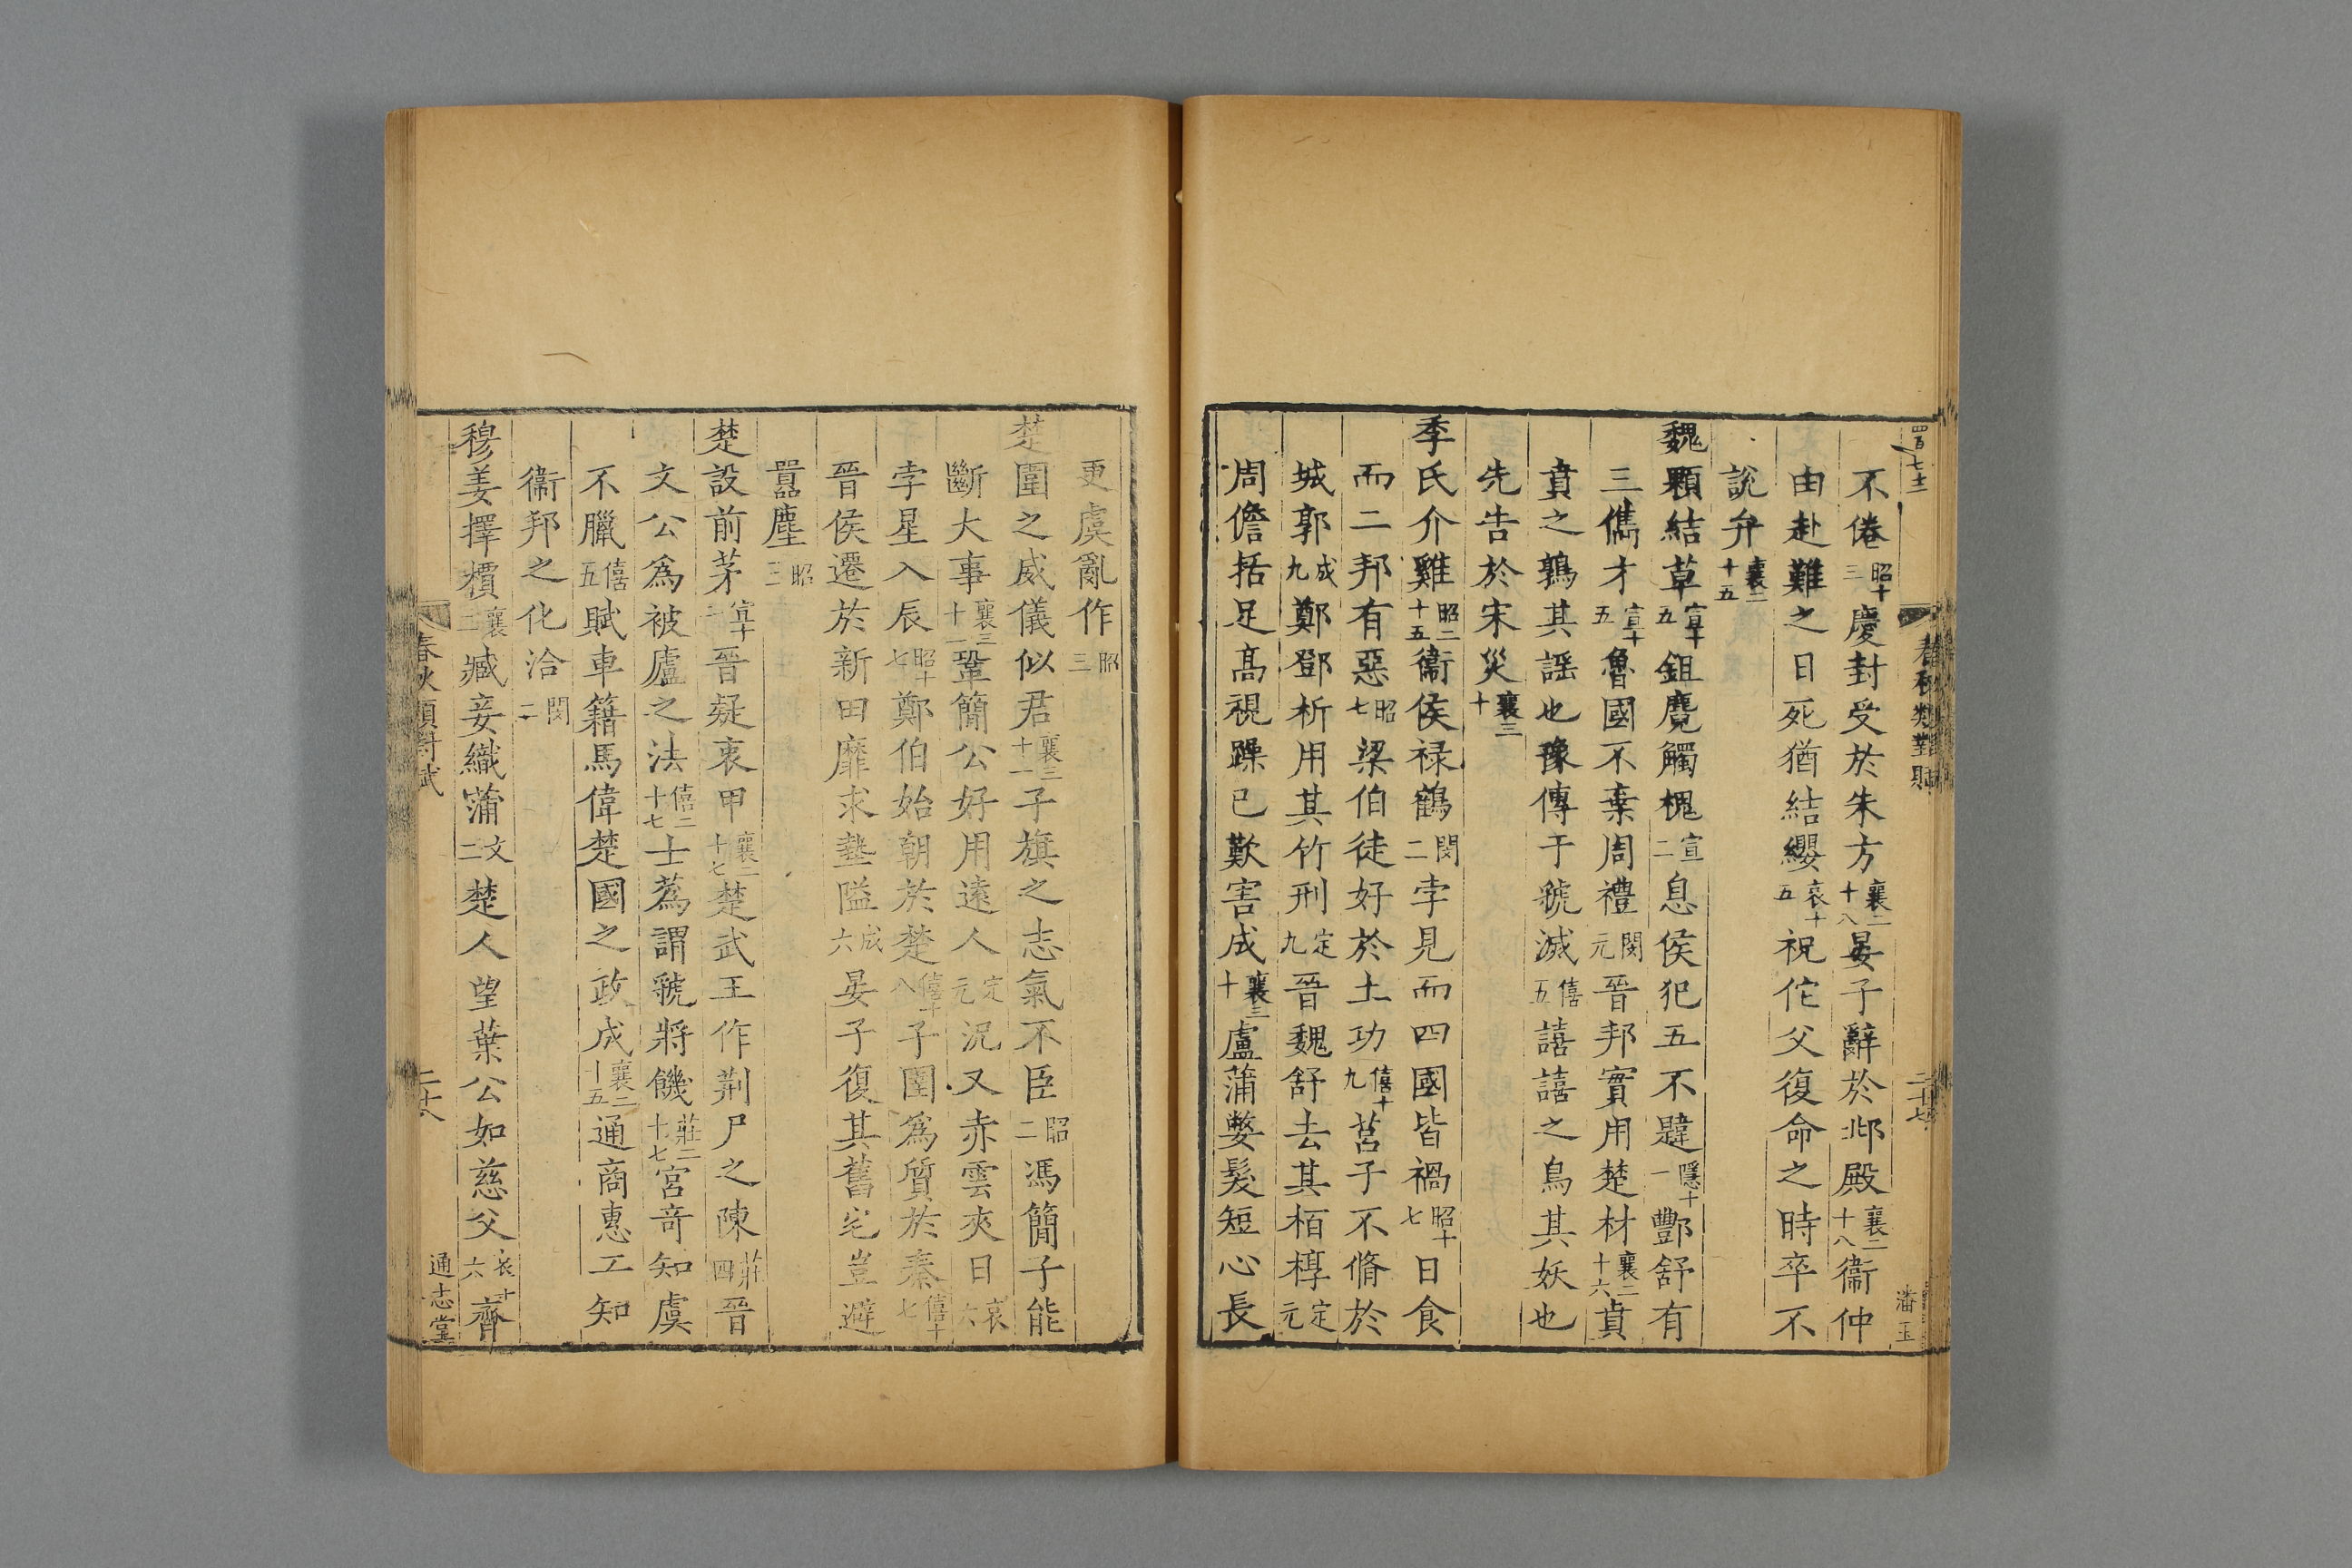 四百七十二
春秋類對賦
二十七
潘玉
不倦昭十三慶封受於朱方襄二十八晏子辭於邶殿襄二十八衞仲
由赴難之日死猶結纓哀十五祝佗父復命之時卒不
說弁襄二十五
魏顆結草宣十五鉏麑觸槐宣二息侯犯五不韙隱十一酆舒有
三儁才宣十五魯國不棄周禮閔元晉邦實用楚材襄二十六賁
賁之鶉其謡也豫傳于虢滅僖五譆譆之鳥其妖也
先告於宋災襄三十
季氏介雞昭二十五衞侯禄鶴閔二孛見而四國皆禍昭十七日食
而二邦有惡昭七梁伯徒好於土功僖十九莒子不脩於
城郭成九鄭鄧析用其竹刑定九晉魏舒去其栢椁定元
周儋括足髙視躁已歎害成襄三十盧蒲嫳髮短心長
更虞亂作昭三
楚圍之威儀似君襄三十一子旗之志氣不臣昭二馮簡子能
斷大事襄三十一鞏簡公好用遠人定元況又赤雲夾日哀六
孛星入辰昭十七鄭伯始朝於楚僖十八子圉爲質於秦僖十七
晉侯遷於新田靡求墊隘成六晏子復其舊宅豈避
嚚塵昭三
楚設前茅宣十二晉疑衷甲襄二十七楚武王作荆尸之陳莊四晉
文公爲被廬之法僖二十七士蔿謂虢將饑莊二十七宮竒知虞
不臘僖五賦車籍馬偉楚國之政成襄二十五通商惠工知
衞邦之化洽閔二
穆姜擇檟襄二臧妾織蒲文二楚人望葉公如慈父哀十六齊
春秋類對賦
二十八
通志堂